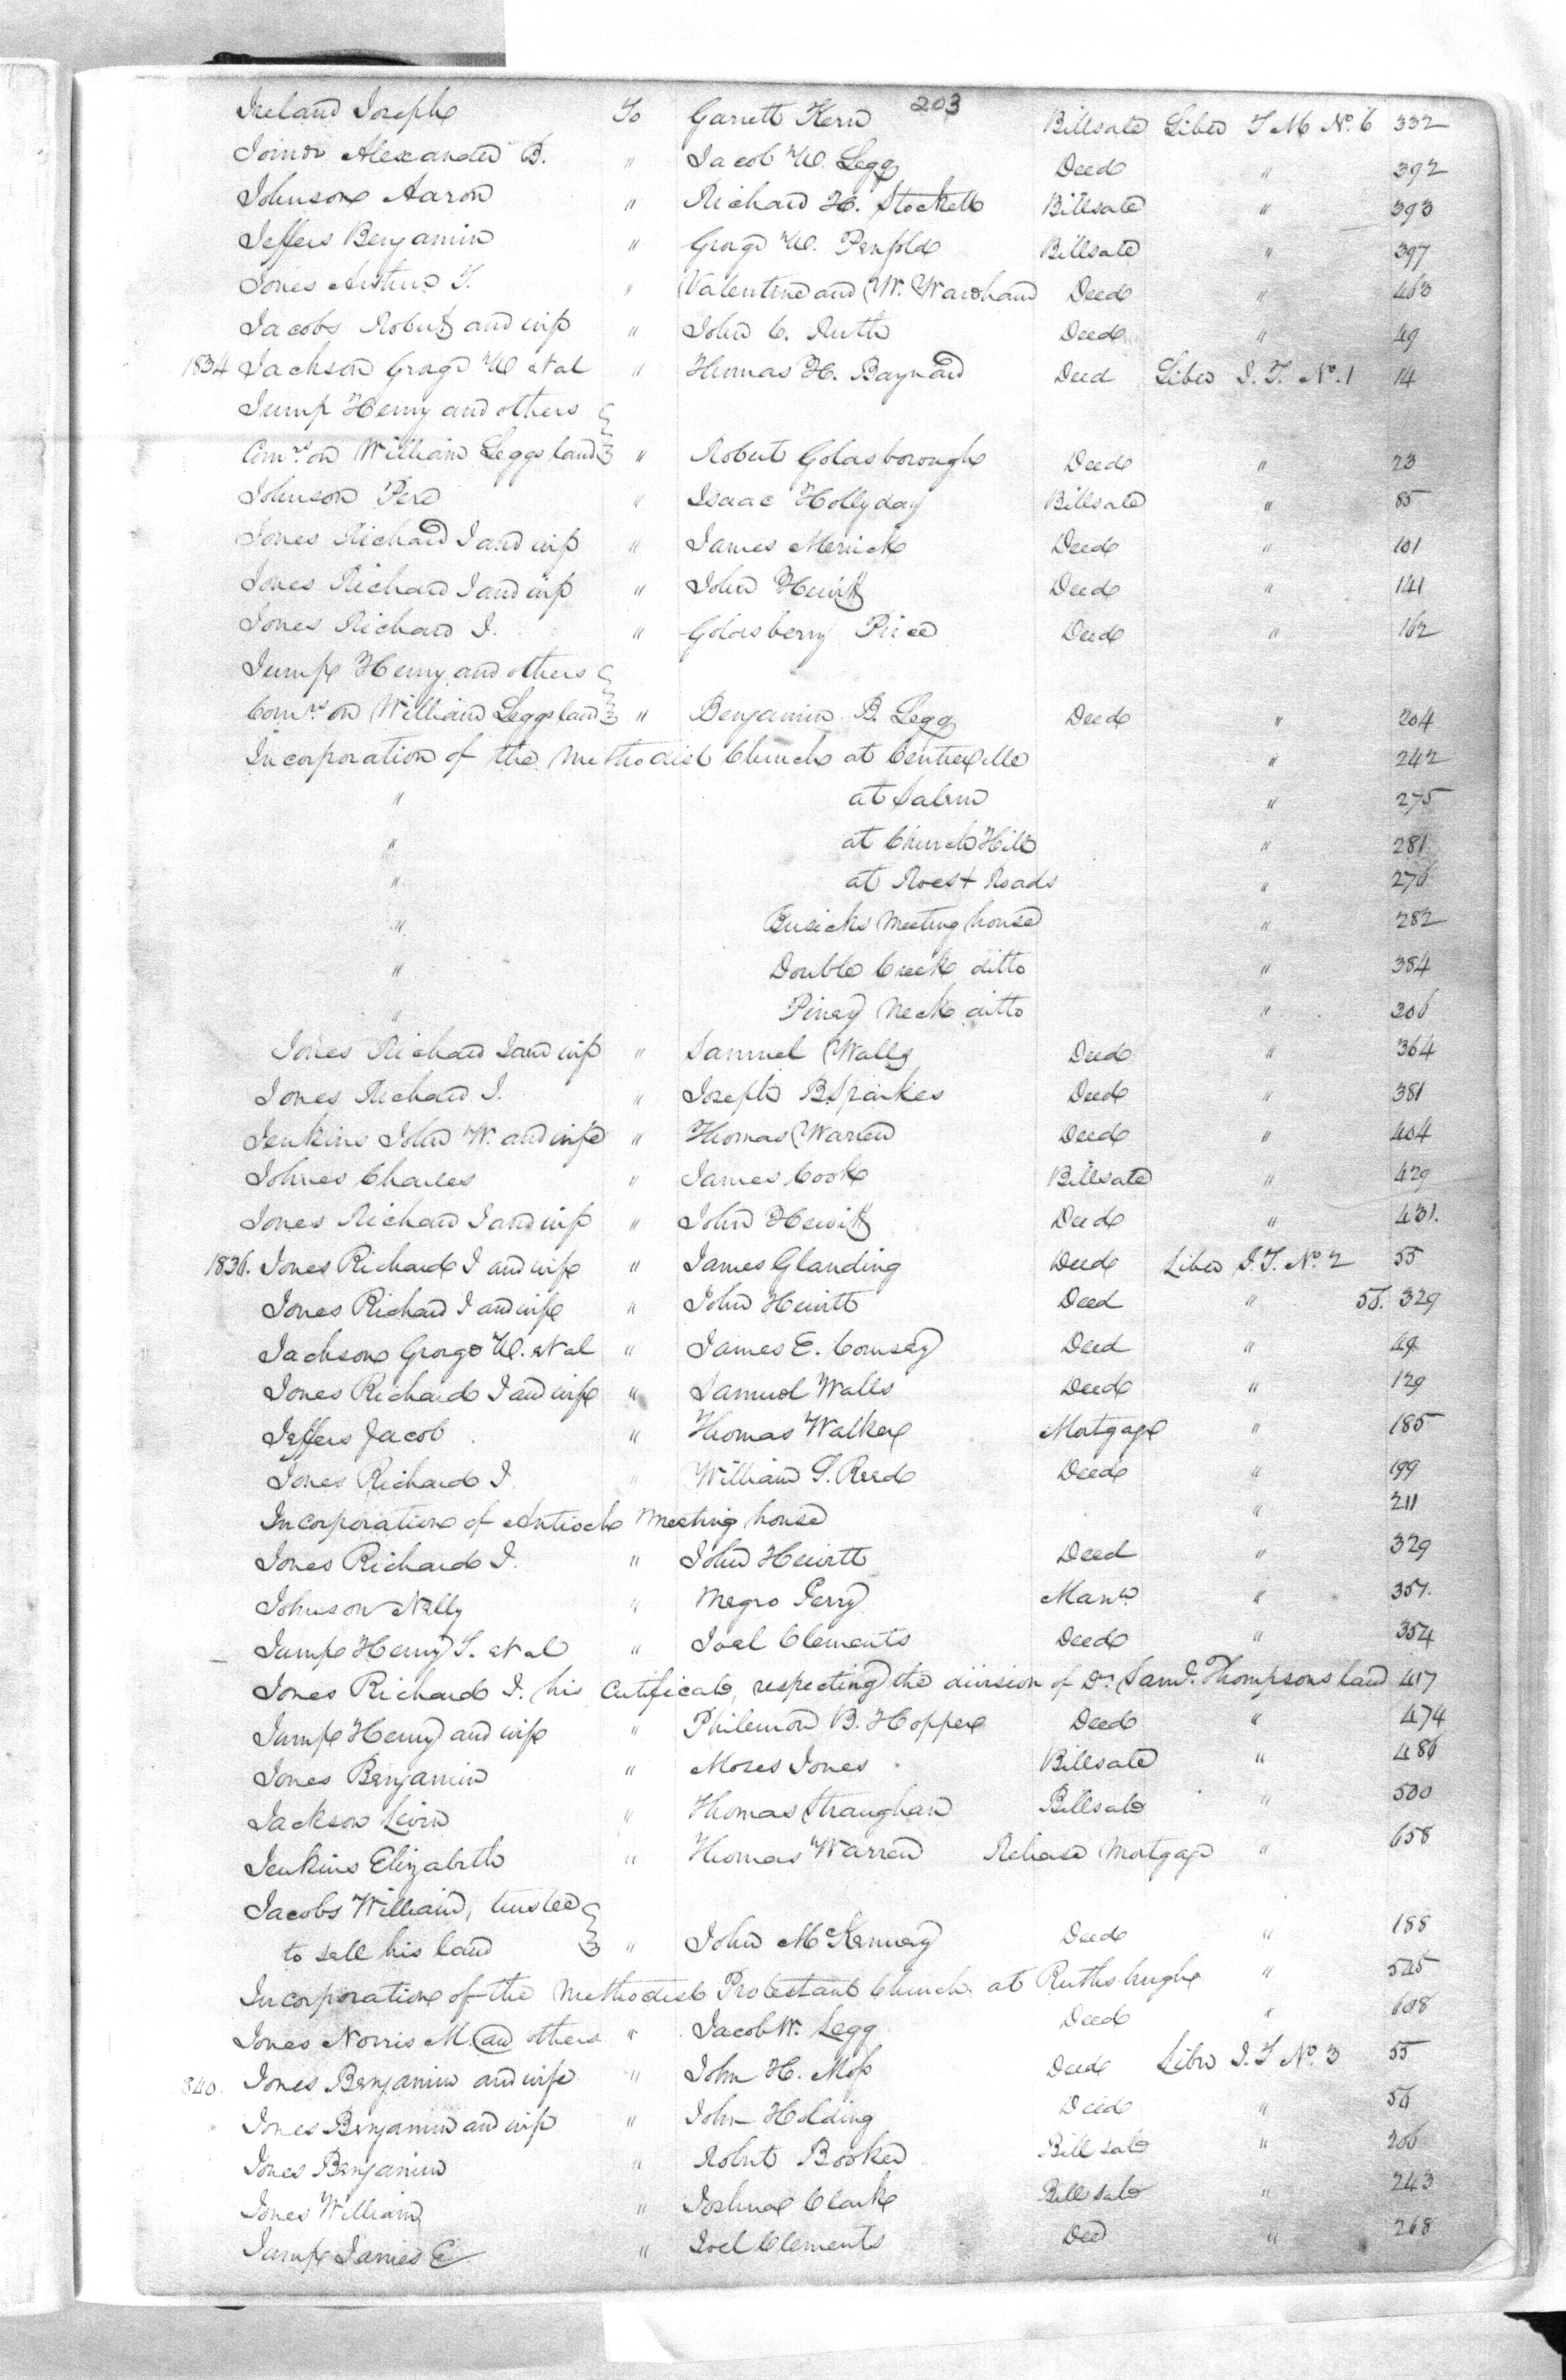 203
Ireland Joseph To Garrett Kern Billsale Liber T M No. 6 332
Joiner Alexander B. " Jacob W. Legg Deed " 392
Johnson Aaron " Richard H. Stockett Billsale " 393
Jeffers Benjamin " George W. Penfold Billsale " 397
Jones Arthur T. " Valentine and W. Deed " 463
Jacobs Robert and wife " John C. Ruth Deed " 49
1834 Jackson George W et al " Thomas H. Baynard Deed Liber J. T. No. 1 14
Jump Henry and others
Comrs on William Leggs land " Robert Goldsborough Deed " 23
Johnson Pere " Isaac Hollyday Billsale " 85
Jones Richard I and wife " James Merrick Deed " 101
Jones Richard I and wife " John Hewitt Deed " 141
Jones Richard I. " Goldsberry Price Deed " 162
Jump Henry and others
Comrs on William Leggs land " Benjamin B. Legg Deed " 204
Incorporation of the Methodist Church at Centreville " 242
" at Salem " 275
" at Church Hill " 281
" at Roads " 276
" Busicks Meeting house " 282
" Double Creek ditto " 384
" Piney Neck ditto " 306
Jones Richard I and wife " Samuel Walls Deed " 364
Jones Richard I. " Joseph B Sparkes Deed " 381
Jenkins John W. and wife " Thomas Warren Deed " 404
Johnes Charles " James Cook Billsale " 429
Jones Richard I and wife " John Hewitt Deed " 431.
1836. Jones Richard I and wife " James Glanding Deed Liber J. T. No. 2 55
Jones Richard I and wife " John Hewitt Deed " 58. 329
Jackson George W. et al " James E. Comsey Deed " 49
Jones Richard I and wife " Samuel Walls Deed " 129
Jeffers Jacob " Thomas Walker Mortgage " 185
Jones Richard I " William T. Reed Deed " 199
Incorporation of Antioch Meeting house " 211
Jones Richard I. " John Hewitt Deed " 329
Johnson Nelly " Negro Perry Mann. " 351.
Jump Henry T. et al " Joel Clements Deed " 354
Jones Richard I. his Certificate, respecting the division of Dr. Saml. Thompsons land 417
Jump Henry and wife " Philemon B. Hopper Deed " 474
Jones Benjamin " Moses Jones Billsale " 486
Jackson Levin " Thomas Straughan Billsale " 500
Jenkins Elizabeth " Thomas Warren Release Mortgage " 658
Jacobs William, trustee
to sell his land " John McKenney Deed " 188
Incorporation of the Methodist Protestant Church at Ruthsburgh " 545
Jones Norris M. and others " Jacob W. Legg Deed " 608
840. Jones Benjamin and wife " John H. Moss Deed Liber J. T No. 3 55
Jones Benjamin and wife " John Holding Deed " 56
Jones Benjamin " Robert Booker Bill sale " 206
Jones William " Joshua Clark Bill sale " 243
Jump James E " Joel Clements Deed " 268